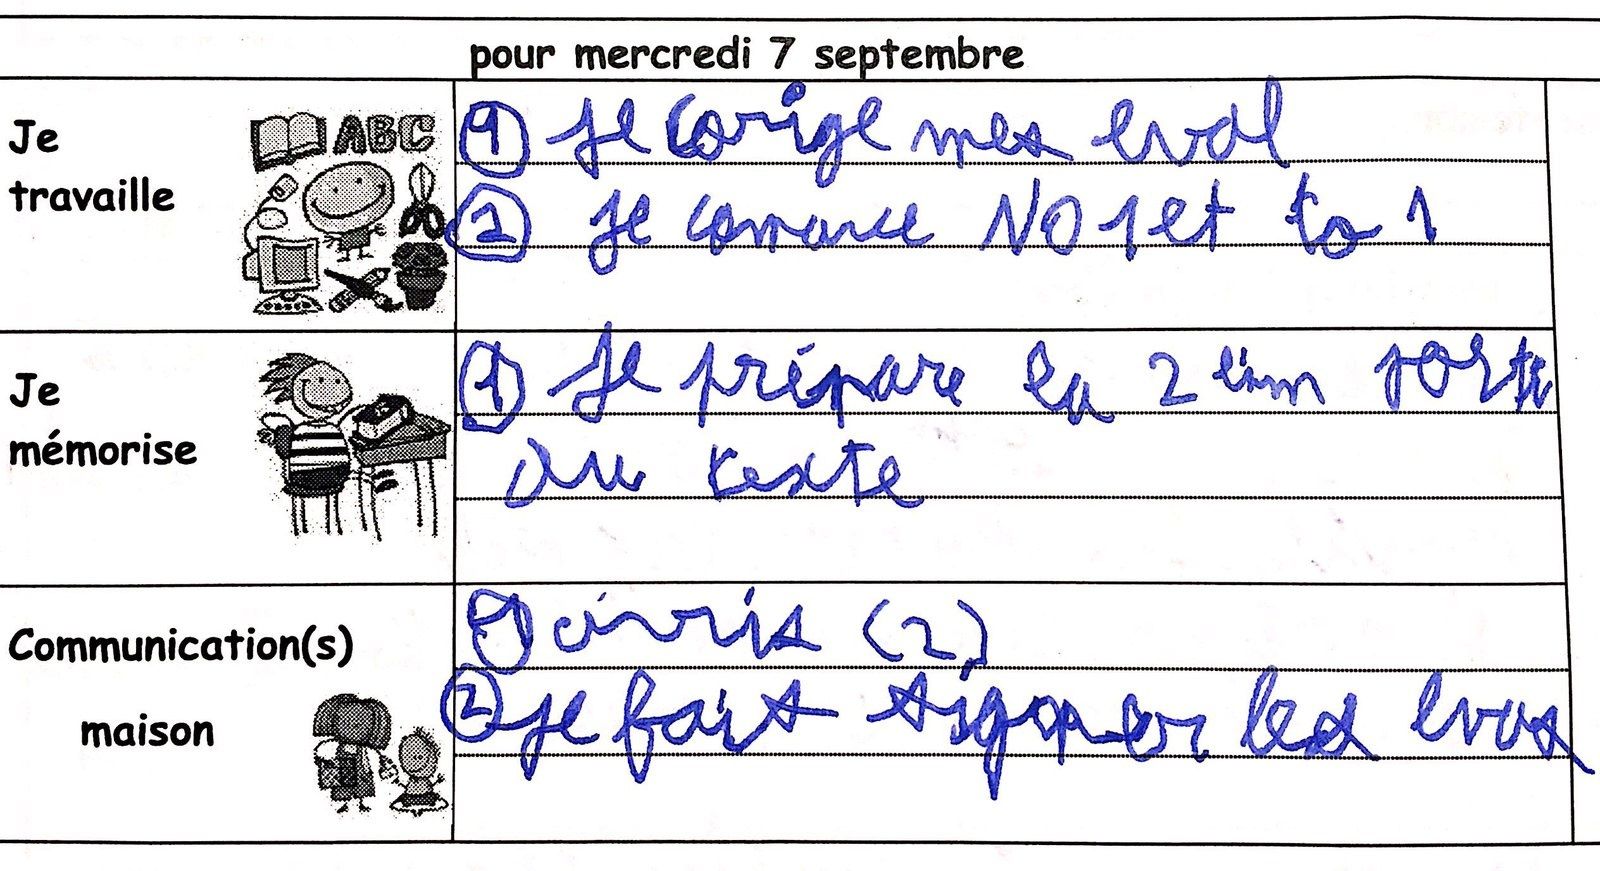 pour mercredi 7 septembre
Je travaille
ABC
① Je corige mes eval
② Je commence NO1et to 1
Je mémorise
① Je prépare la 2 eim
du texte
Communication(s) maison
① avis (2)
② je fait signer les evas